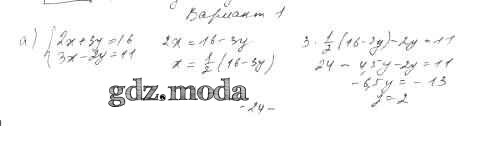 Вариант 1
а) { 2x+3y=16
3x-2y=11
2x=16-3y
x=1/2(16-3y)
3·1/2(16-3y)-2y=11
24-4,5y-2y=11
-6,5y=-13
y=2
gdz.moda
-24-